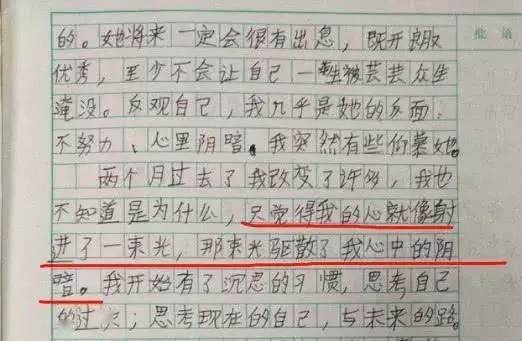 批 语
的。她将来一定会很有出息，既开朗又
优秀，至少不会让自己一生被芸芸众生
淹没。反观自己，我几乎是她的反面：
不努力、心里阴暗。我突然有些仰慕她。
两个月过去了我改变了许多，我也
不知道是为什么，只觉得我的心就像射
进了一束光，那束光驱散了我心中的阴
暗。我开始有了沉思的习惯，思考自己
的过去；思考现在的自己，与未来的路。